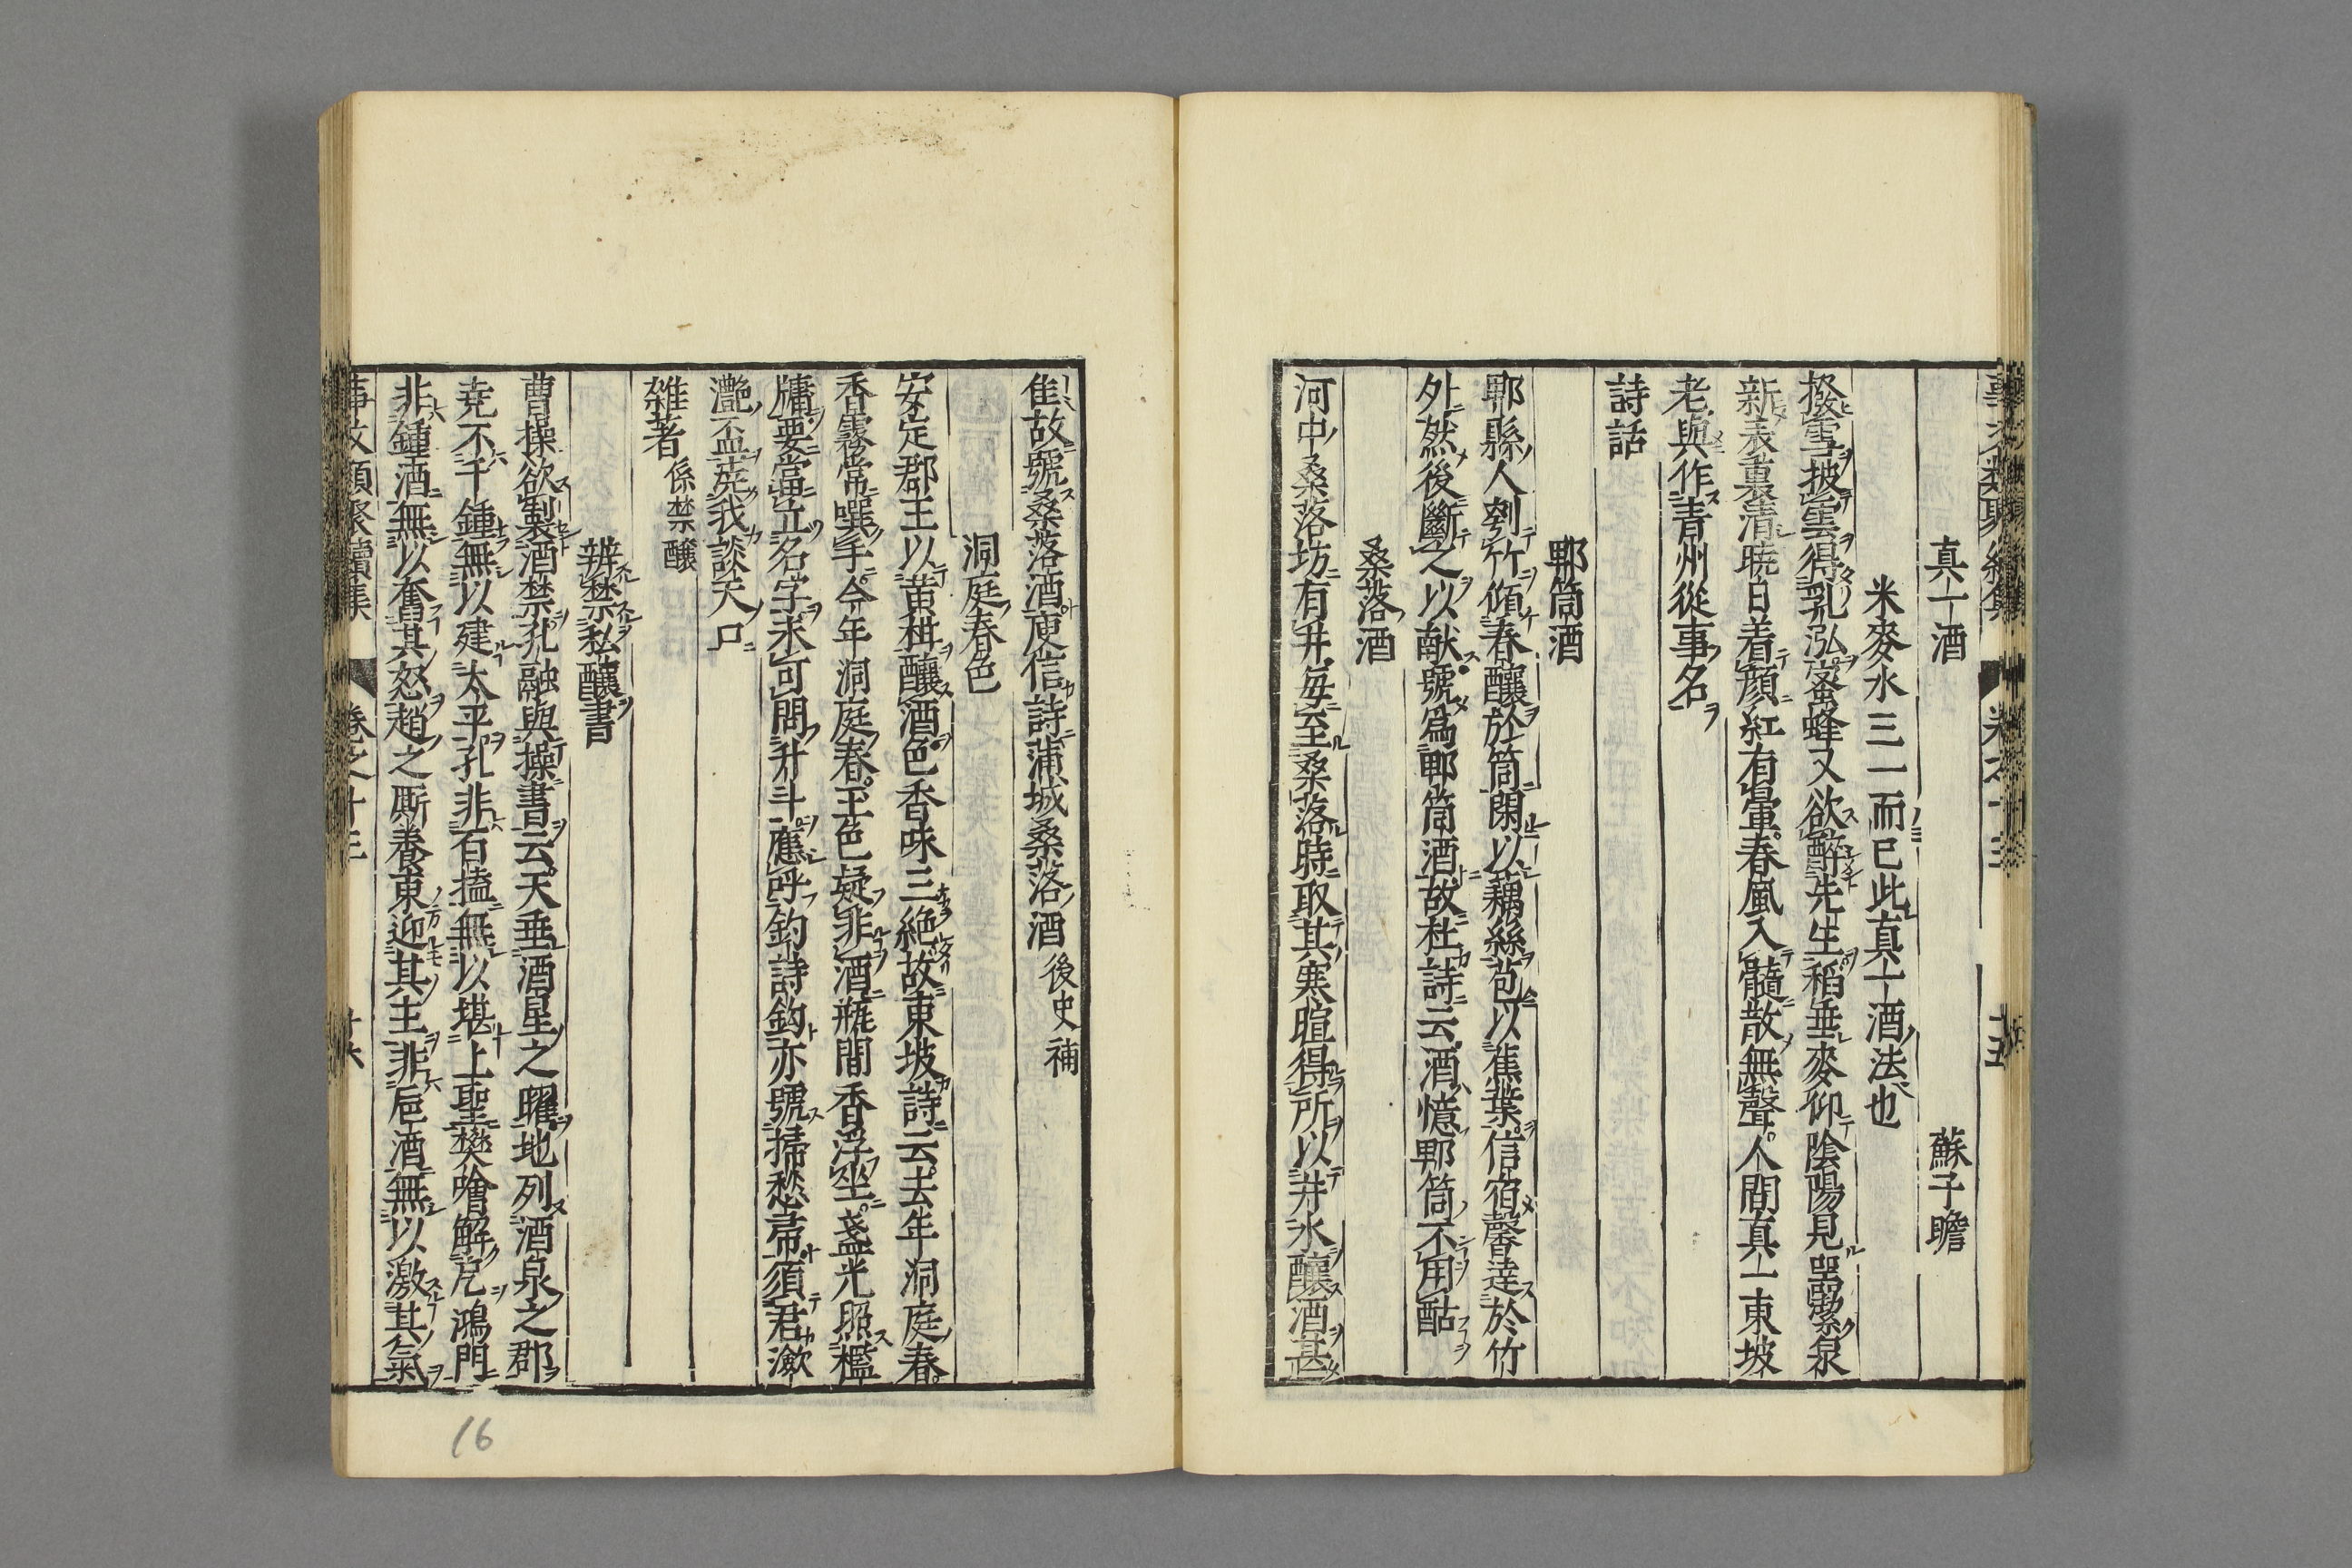 真一酒 蘇子瞻
米麥水三一而已此真一酒法也
撥雪披雲得乳泓蜜蜂又欲醉先生稻垂麥仰陰陽足器潔泉
新表裏清曉日着顏紅有暈春風入髓散無聲人間真一東坡
老與作青州從事名
詩話
郫筒酒
郫縣人刳竹傾春釀於筒閉以藕絲苞以蕉葉信宿馨達於竹
外然後斷之以献號為郫筒酒故杜詩云酒憶郫筒不用酤
桑落酒
河中桑落坊有井每至桑落時取其寒暄得所以井水釀酒甚
佳故號桑落酒庾信詩蒲城桑落酒 後史補
洞庭春色
安定郡王以黄柑釀酒色香味三絶故東坡詩云去年洞庭春
香霧常噀手今年洞庭春玉色疑非酒瓶間香浮坐盞光照檻
牖要當立名字未可問升斗應呼釣詩鈎亦號掃愁帚須君瀲
灔盃莞我談天口
雑著 係禁釀
辨禁私釀書
曹操欲製酒禁孔融與操書云天垂酒星之曜地列酒泉之郡
尭不千鍾無以建太平孔非百榼無以堪上聖樊噲解戹鴻門
非鍾酒無以奮其怒趙之厮養東迎其主非巵酒無以激其氣
事文類聚續集 卷之十三 十六
16